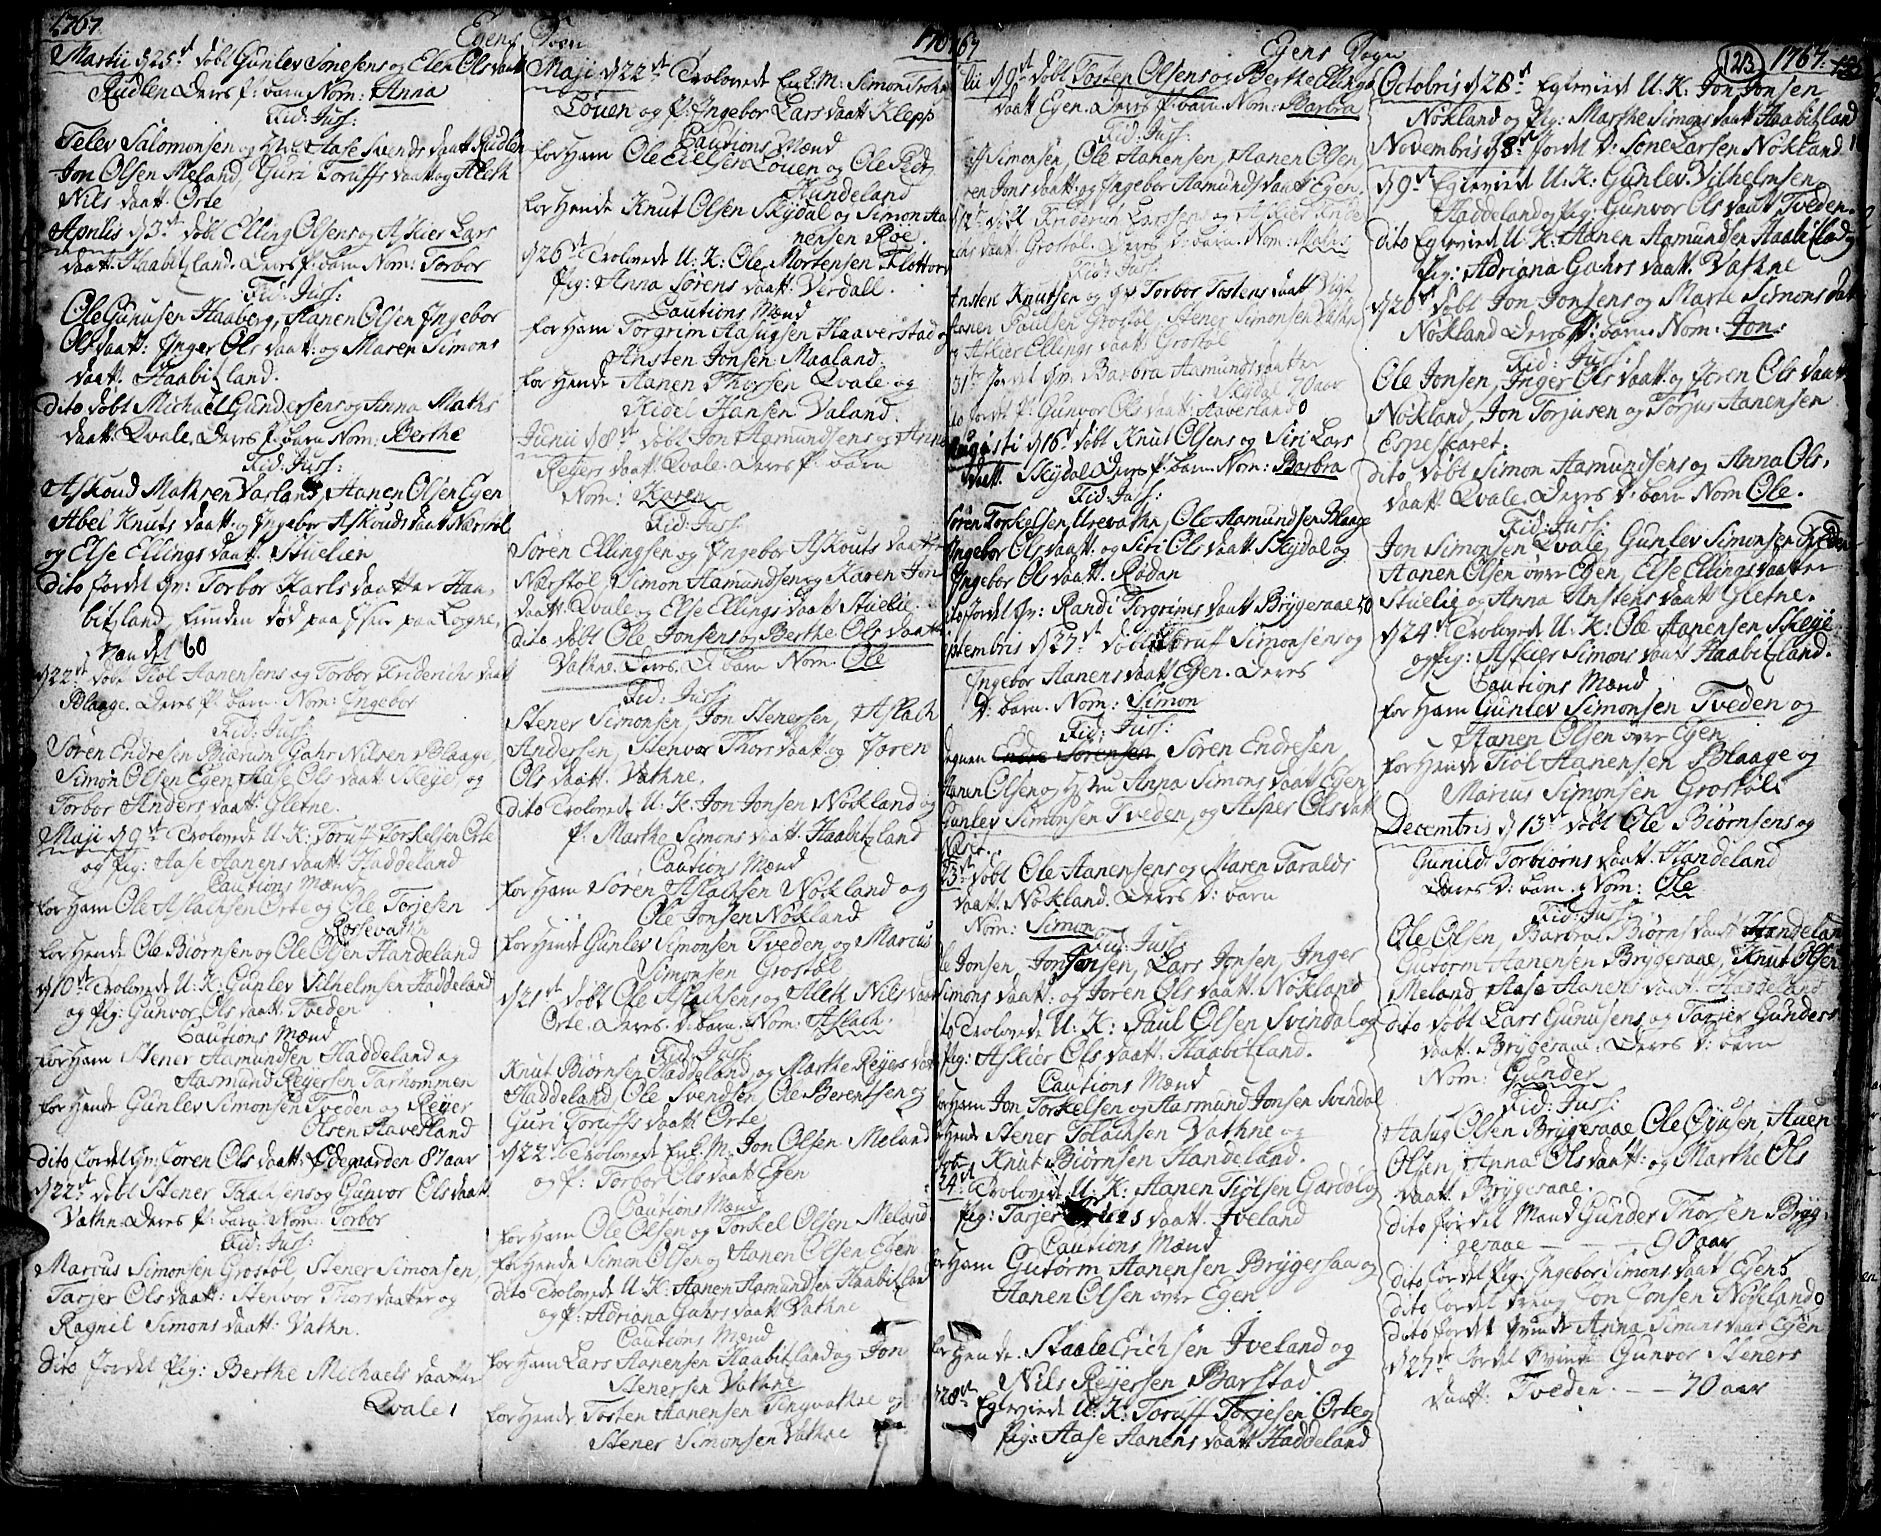 1767.
Egens Sogn
Martii d 25de døbt Gunlev Jonesens og Elen Ols daatt
Rudlen Deres P: barn Nom: Anna
Fid: Juss:
Telev Salomonsen og Aase Svends daatt Rudlen
Jon Olsen Meland, Guri Toruffs daatt og Aleth
Nils daatt: Orte
Aprilis d 3de døbt Elling Olsens og Askier Lars
daatt: Haabitzland. Deres P: barn Nom: Torbor
Fid: Juss:
Ole Gunusen Haaberg, Aanen Olsen Ingebor
Ols daatt: Inger Ols daatt: og Maren Simons
daatt. Haabitzland.
Dito døbt Michael Gundersens og Anna Maths
daatt. Qvale, Deres P: barn Nom: Berthe
Fid: Juss:
Askoud Mathsen Varland, Aanen Olsen Egen
Abel Knuts daatt: og Ingebor Askouds daatt Nærstøl
og Else Ellings daatt: Stuelien
Dito Jordet Qv: Torbor Karls daatter Haa-
bitzland, funden død paa
Vandet 60
d 22de døbt Tiøl Aanensens og Torbor Friderichs daatt
Blaage. Deres P: barn. Nom: Ingebor
Fid: Juss:
Søren Endresen Birerum, Gahr Nilsen Blaage,
Simon Olsen Egen, Aase Ols daatt Skeye, og
Torbor Anders daatt: Gletne.
Maji d 9de Trolovede U: K: Toruff Torkelsen Orte
og Pig: Aase Aanens daatt: Haddeland
Cautions Mænd
For Ham Ole Aslachsen Orte og Ole Torjesen
Rosevathn
For Hende Ole Biørnsen og Ole Olsen Handeland
d 10de Trolovede U: K: Gunlev Vilhelmsen Haddeland
og Pig: Gunvor Ols daatt: Tveden
Cautions Mænd
For Ham Stener Aamundsen Haddeland og
Aasmund Reyersen Tarhommen
For Hende Gunlev Simonsen Tveden og Reyer
Olsen Haversland
Dito Jordet Qv: Joren Ols daatt: Ødegaarden 87 aar
d 22de døbt Stener Taraldsens og Gunvor Ols daatt
Vathn Deres P: barn: Nom: Torbor
Fid: Juss:
Marcus Simonsen Grostøl, Stener Simonsen,
Tarjer Ols daatt: Stenvor Thors daatter og
Ragnil Simons daatt: Vathn.
Dito Jordet Pig: Berthe Michaels daatter
Qvale 1
Maji d 22de Trolovede Enk. M: Simon
Løuen og P: Ingebor Lars daatt Klepp
Cautions Mænd
For Ham Ole Løuen og Ole
Kundeland
For Hende Knut Olsen Skydal og Simon Aa
nensen Røe
d 26de Trolovede U: K: Ole Mortensen Flottorp
Pig: Anna Sørens daatt: Verdall.
Cautions Mænd
For Ham Torgrim Aasugsen Haaverstad og
Ansten Jonsen Maaland.
For Hende Aanen Thorsen Qvale og
Kidel Hansen Valand.
Junii d 8de døbt Jon Aamundsens og Anna
Reyers daatt Qvale. Deres P: barn
Nom: Karen
Fid: Juss:
Søren Ellingsen og Ingebor Askouts daatter
Nærstøl, Simon Aamundsen og Karen Jon
daatt: Qvale og Else Ellings daatt Stuelie.
Dito døbt Ole Jonsens og Berthe Ols daatt
Vathne. Deres D: barn Nom: Ole
Fid: Juss:
Stener Simonsen, Jon Stenersen, Aslach
Andersen, Stenvor Thors daatt: og Joren
Ols daatt. Vathne.
Dito Trolovede U: K: Jon Jonsen Nøkland og
P: Marthe Simons daatt: Haabitzland
Cautions Mænd
For Ham Søren Aslachsen Nøkland og
Ole Jonsen Nøkland
For Hende Gunlev Simonsen Tveden, og Marcus
Simonsen Grostøl
d 21de døbt Ole Aslachsens og Aleth Nils daatt
Orte. Deres D: barn. Nom: Aslach.
Fid: Juss:
Knut Biørnsen Haddeland, og Marthe Reyers daatt
Haddeland, Ole Svendsen, Ole Berentsen og
Guri Toruffs daatt Orte
d 22de Trolovede Enk. M. Jon Olsen Meland
og P: Torbor Ols daatt Egen
Cautions Mænd
For Ham Ole Olsen og Torkel Olsen Meland
For Hende Simon Olsen og Aanen Olsen Egen
Dito Trolovede U: K: Aanen Aamundsen Haabitzland
og P: Adriana Gahrs daatt Vathne
Cautions Mænd
For Ham Lars Aanensen Haabitzland og Jon
Stenersen Vathne
For Hende Tosten Aanensen Tingvathne og
Stener Simonsen Vathne
1767
Egens Sogn
123
1767.
Julii d 9de døbt Tosten Olsens og Berthe Ellings
daatt Egen. Deres P: barn. Nom: Barbra
Fid: Juss:
Simonsen, Ole Aanensen, Aanen Olsen
Jons daatt: og Ingebor Aamunds daatt Egen.
d 12de døbt Friderich Larssens og Askier
daatt: Grostøl. Deres D: barn. Nom:
Fid: Juss:
Ansten Knutsen og Torbor Tostens daatt
Aanen Paulsen Grostøl, Stener Simonsen Vathn
og Askier Ellings daatt: Grostøl
31te Jordet Qv: Barbra Aamunds daatter
Skydal 70 aar
Dito Jordet P: Gunvor Ols daatt: Haversland 0
Augusti d 16 døbt Knut Olsens og Siri Lars
daatt. Skydal Deres P: barn. Nom: Barbra
Fid: Juss:
Søren Torkelsen Urevathn, Ole Aamundsen Blaage
Ingebor Ols daatt: og Siri Ols daatt Skydal og
Ingebor Ols daatt. Rødan
Dito Jordet Qv: Randi Torgrims daatt Brygesaae 50
Septembris d 27de døbt Toruff Simonsens og
Ingebor Aanens daatt Egen. Deres
D: barn. Nom: Simon
Fid: Juss:
Søren Endresen,
Aanen Olsen og Anna Simons daatt Egen,
Gunlev Simonsen Tveden, og Asper Ols daatt
døbt Ole Aanensens og Maren Taralds
daatt: Nøkland. Deres D: barn
Nom: Simon
Fid: Juss:
Ole Jonsen, Jon Jonsen, Lars Jonsen, Inger
Simons daatt: og Joren Ols daatt. Nøkland
Dito Trolovede U: K: Paul Olsen Svindal og
Pig: Askier Ols daatt: Haabitzland.
Cautions Mænd
For Ham Jon Torkelsen og Aasmund Jonsen Svindal
For Hende Stener Vathne og
Knut Biørnsen Handeland.
24de Trolovede U: K: Aanen Tiølsen Gardøl og
Pig: Tarjer daatt. Jveland
Cautions Mænd
For Ham Gutorm Aanensen Brygesaa og
Aanen Olsen øvre Egen
For Hende. Staale Erichsen Jveland og
Nils Reyersen Barstad
d 28de Egteviede U: K: Toruff Torjesen Orte og
Pig: Aase Aanens daatt Haddeland
Octobris d 28de Egteviede U. K: Jon Jonsen
Nøkland og Pig: Marthe Simons daatt Haabitzland
Novembris d 8de Jordet D: Jone Larsen Nøkland
d 9de Egteviede U: K: Gunlev Vilhelmsen
Haddeland og Pig: Gunvor Ols daatt Tveden.
Dito Egteviede U: K: Aanen Aamundsen Haabitzland og
Pig: Adriana Gahrs daatt. Vathne
d 20de døbt Jon Jonsens og Marte Simons daatt
Nøkland Deres D: barn. Nom: Jon:
Fid: Juss:
Ole Jonsen, Inger Ols daatt: og Joren Ols daatt
Nøkland, Jon Torjusen og Torjus Aanensen
Espeskaret:
Dito døbt Simon Aamundsens og Anna Ols,
daatt. Qvale. Deres D: barn Nom Ole.
Fid: Juss:
Jon Simonsen Qvale, Gunlev Simonsen Tveden
Aanen Olsen øvre Egen, Else Ellings daatter
Stuelie og Anna Anstens daatt Gletne.
d 24de Trolovede U: K: Ole Aanensen Skeye
og Pig: Askier Simons daatt Haabitzland.
Cautions Mænd
For Ham Gunlev Simonsen Tveden og
Aanen Olsen øvre Egen
For Hende Tiøl Aanensen Blaage og
Marcus Simonsen Grostøl.
Decembris d 13de døbt Ole Biørnsens og
Gunild Torbiørns daatt: Handeland
Deres D: barn. Nom: Ole
Fid: Juss:
Ole Olsen, Barbra Biørns daatt Handeland
Gutorm Aanensen Brygesaae, Knut Olsen
Meland, Aase Aanens daatt. Haddeland
Dito døbt Lars Gunusens og Tarjer Gunders
daatt. Brygesaae. Deres D: barn
Nom: Gunder
Fid: Juss:
Aasug Olsen Brygesaae Ole Aanen
Olsen, Anna Ols daatt: og Marthe Ols
daatt. Brygesaae.
Dito Jordet Mand Gunder Thorsen Bryg-
gesaae — — 90 aar
Dito Jordet Pig: Ingebor Simons daatt Egen 5
Dito Jordet Dreng Jon Jonsen Nøkland 0
Dito Jordet Qvinde Anna Simons daatt Egen
d 27de Jordet Qvinde Gunvor Steners
daatt. Tveden. — — 70 aar